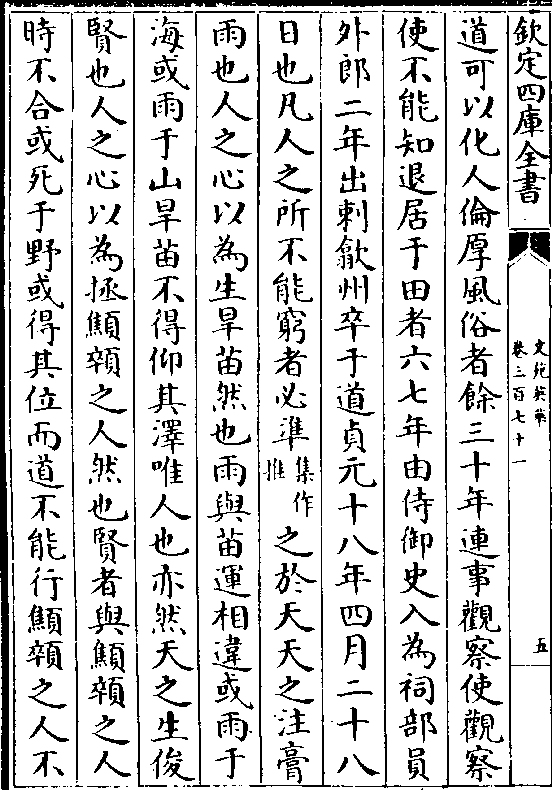 欽定四庫全書
文苑英華
卷三百七十一
五
道可以化人倫厚風俗者餘三十年連事觀察使觀察
使不能知退居于田者六七年由侍御史入為祠部員
外郎二年出刺歙州卒于道貞元十八年四月二十八
日也凡人之所不能窮者必準集作推之於天天之注膏
雨也人之心以為生旱苗然也雨與苗運相違或雨于
海或雨于山旱苗不得仰其澤唯人也亦然天之生俊
賢也人之心以為拯顦顇之人然也賢者與顦顇之人
時不合或死于野或得其位而道不能行顦顇之人不